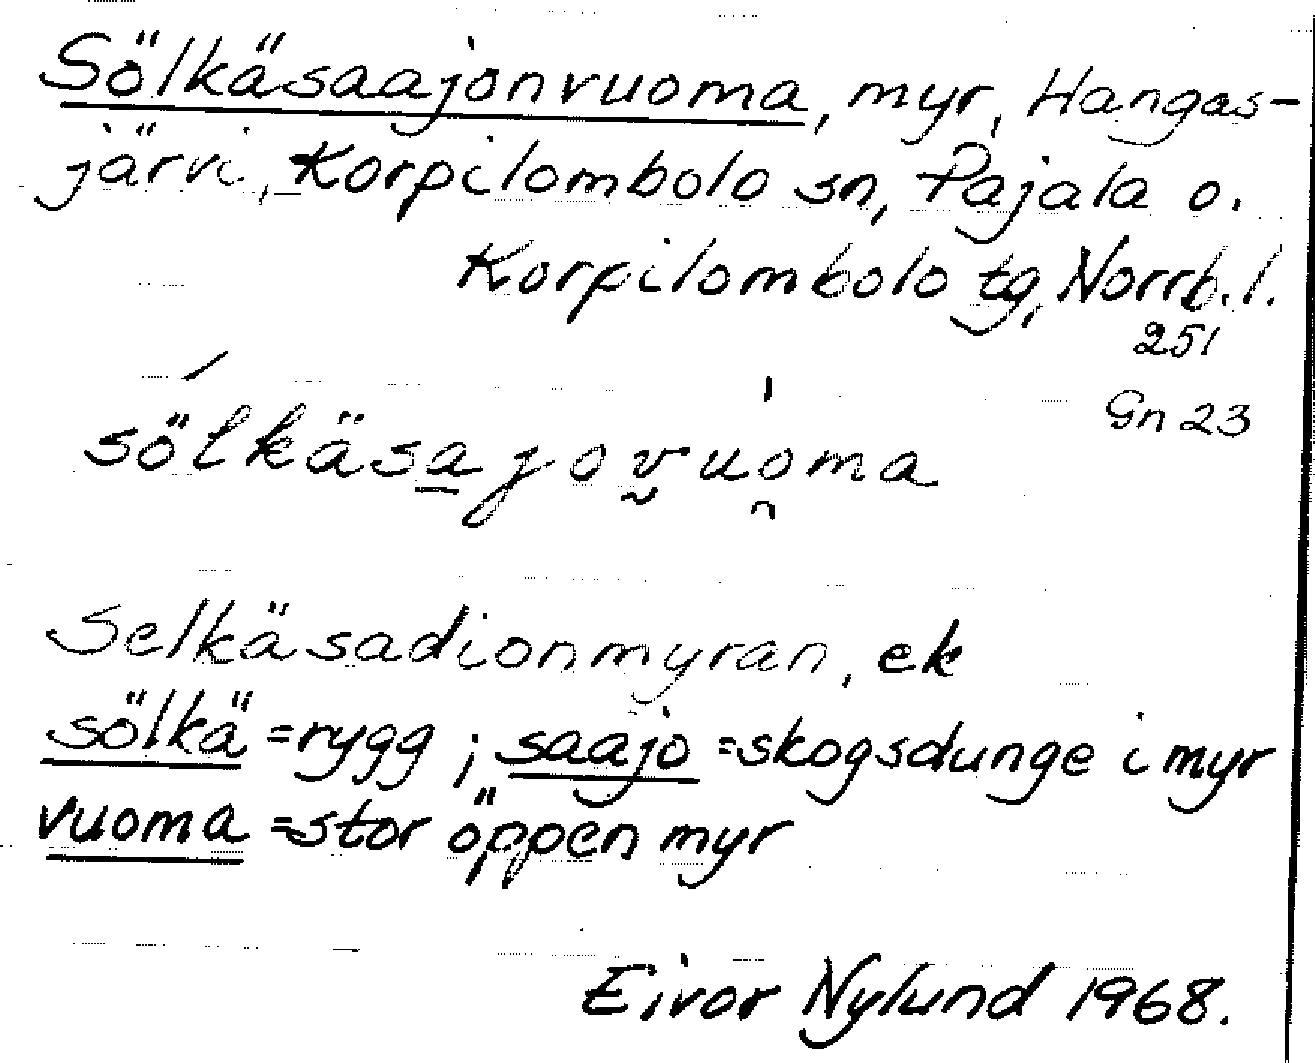 Sölkäsaajonvuoma, myr, Hangas-
järvi, Korpilombolo sn, Pajala o.
Korpilombolo tg, Norrb.l.
251
Gn 23
sölkäsa̲jov̰uo̯ma
Selkäsadionmyran, ek
sölkä = rygg ; saajo = skogsdunge i myr
vuoma = stor öppen myr
Eivor Nylund 1968.